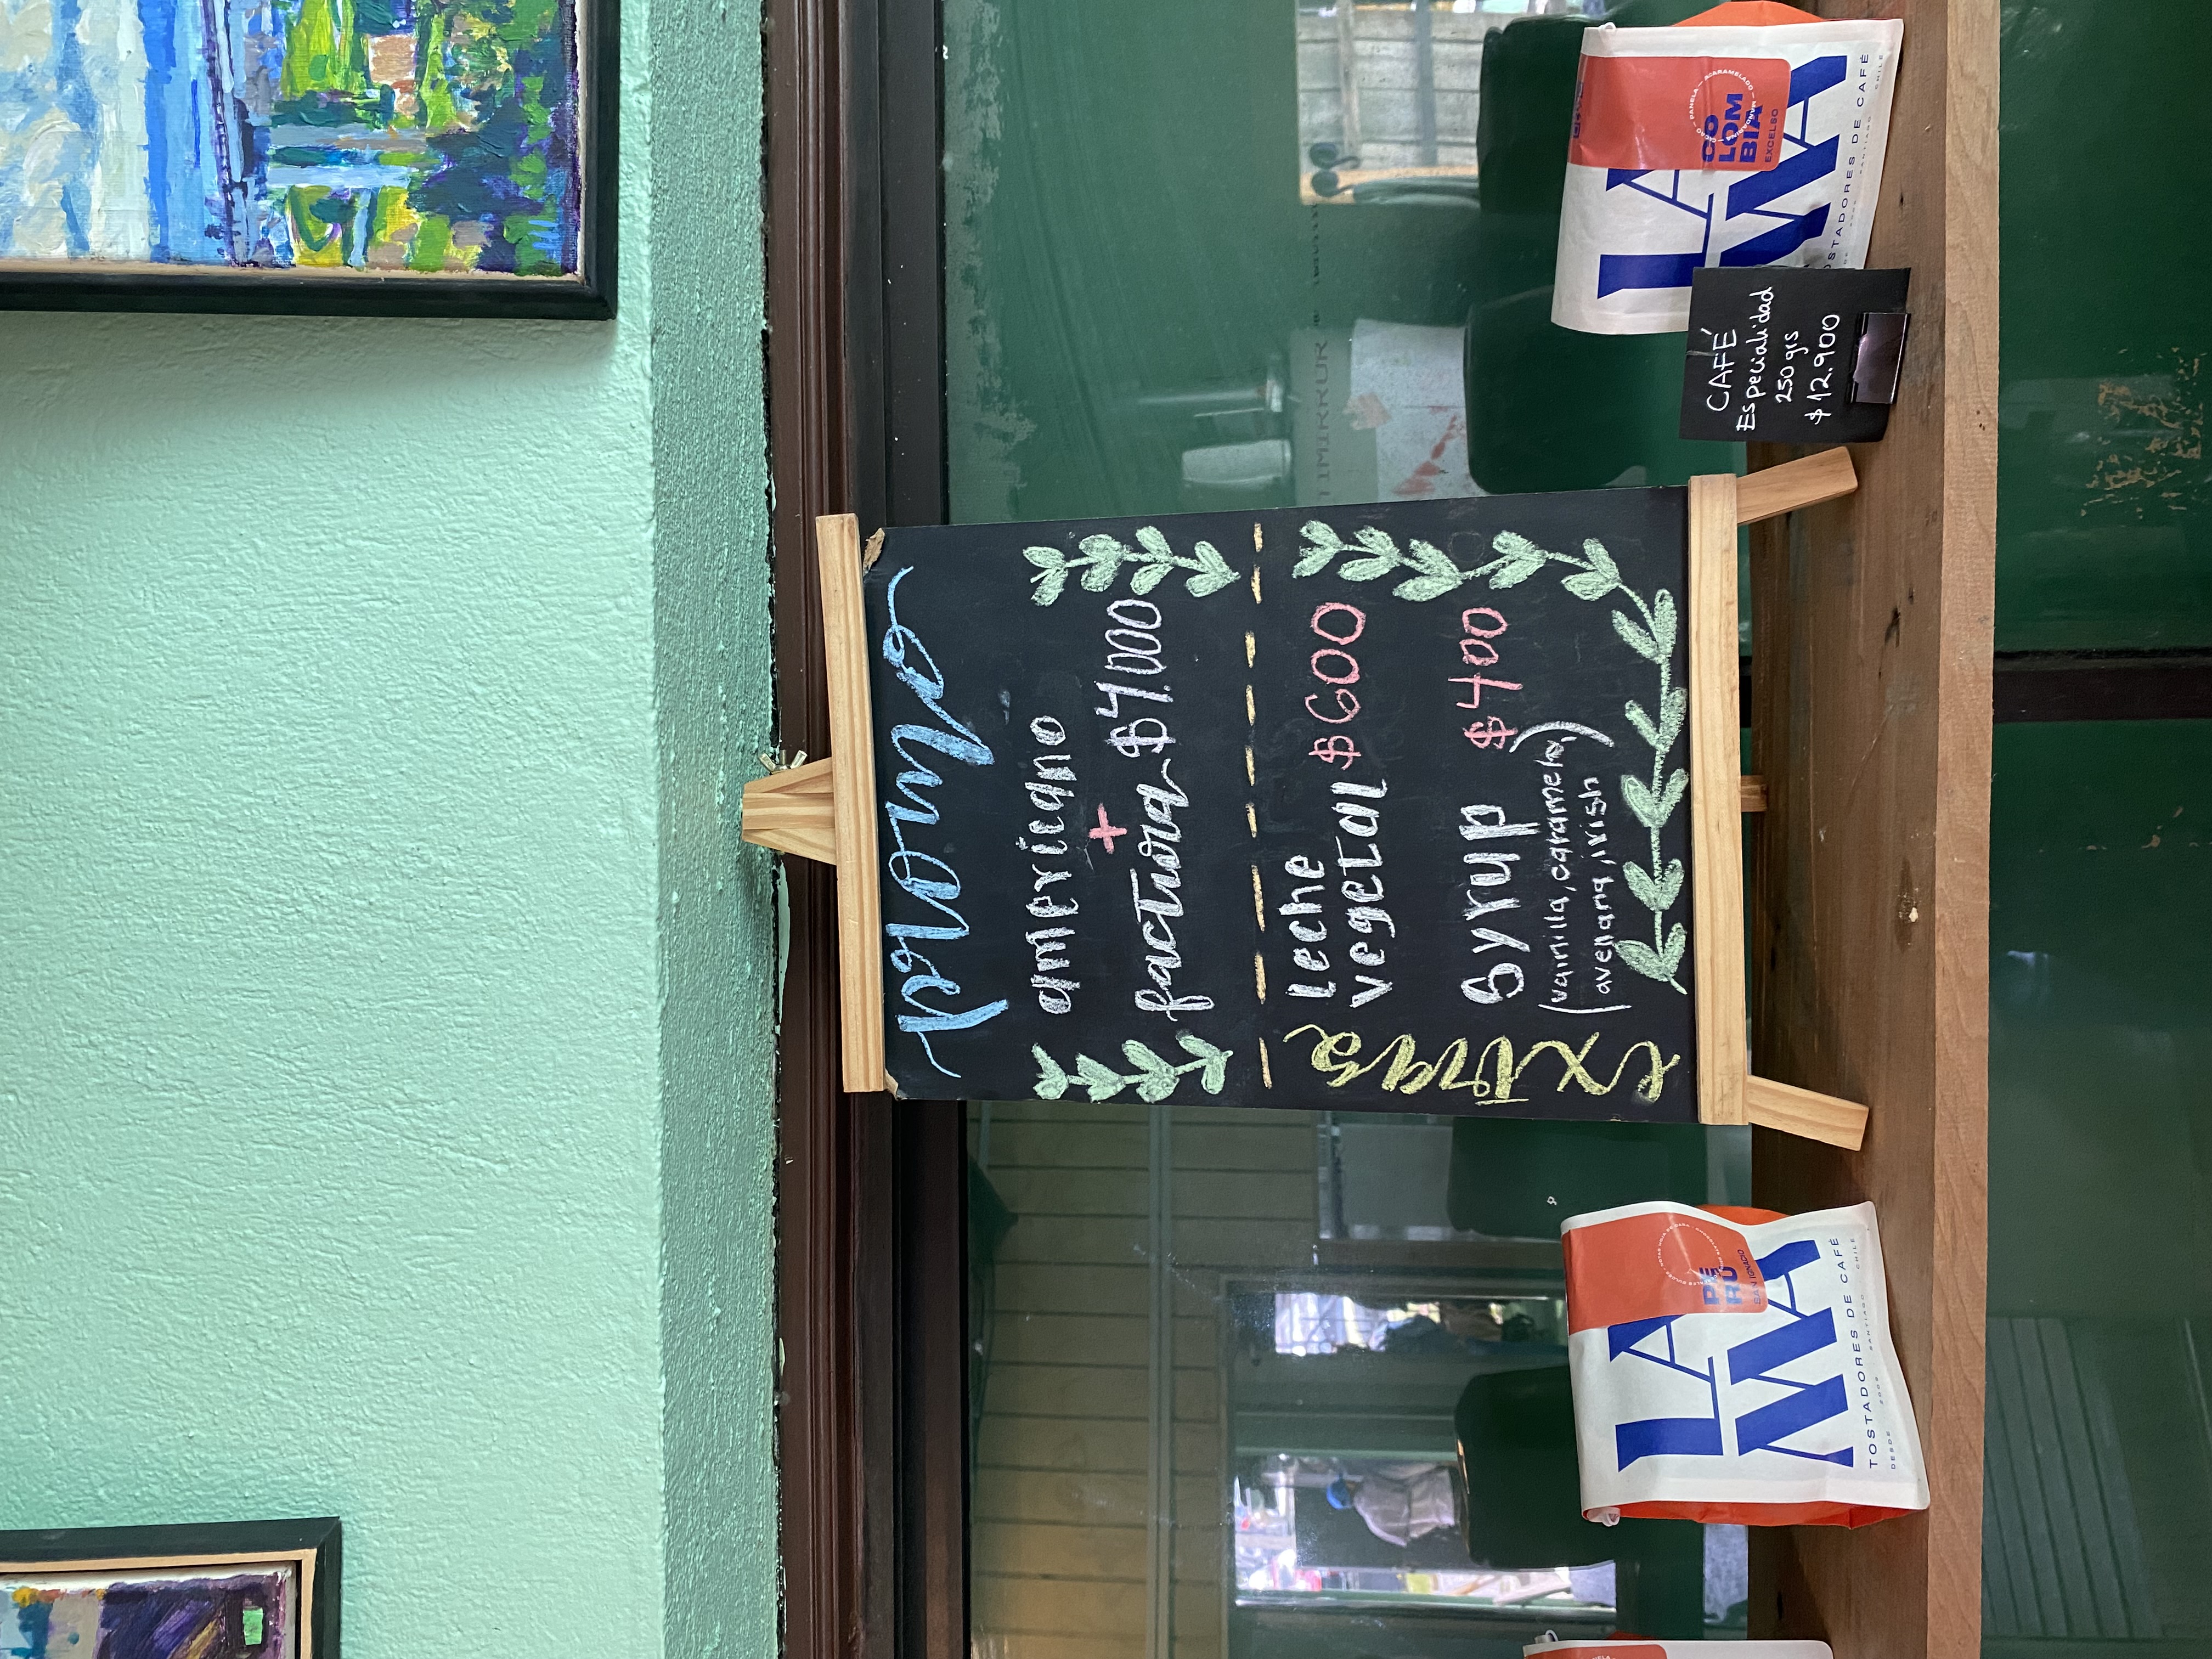 promo
americano
+
factura $4.000
extras
Leche
vegetal $600
Syrup $400
(vainilla, caramelo,
avellana, irish)
LA
MA
PE
RU
SAN IGNACIO
TOSTADORES DE CAFÉ
DESDE 2009 SANTIAGO CHILE
CAFÉ
Especialidad
250 grs
$12.900
LA
MA
CO
LOM
BIA
EXCELSO
TOSTADORES DE CAFÉ
SANTIAGO CHILE